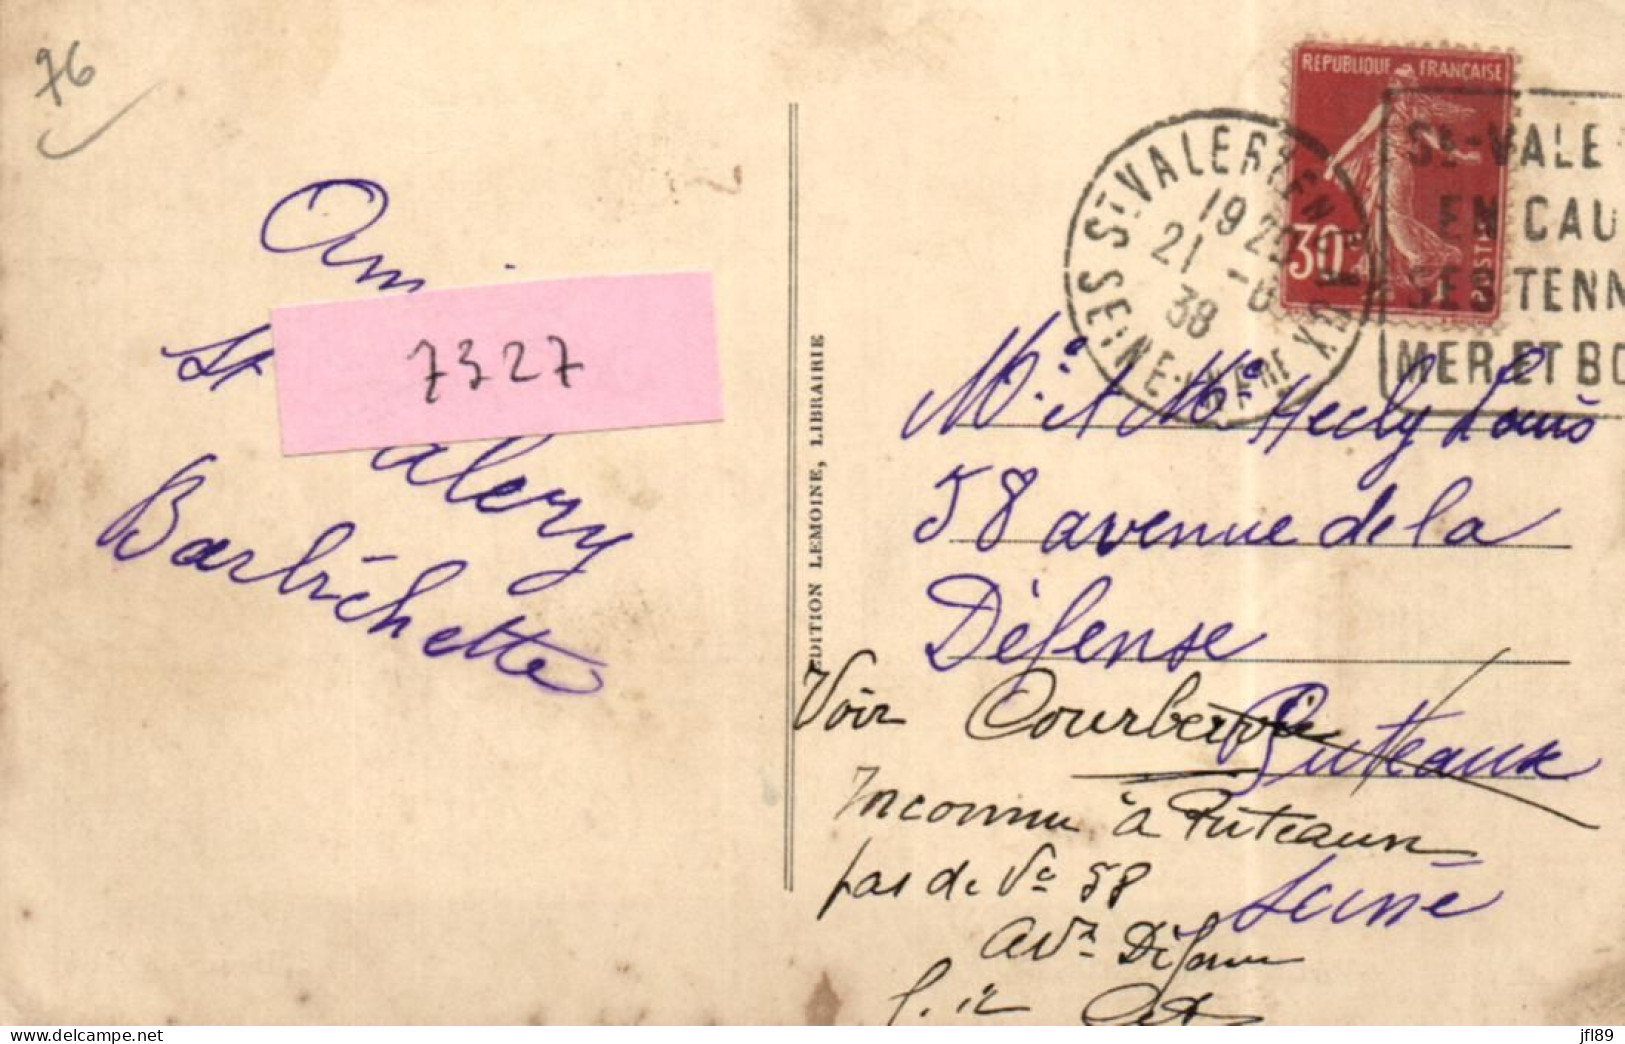 76
Ami
St
alery
Barbichette
7327
EDITION LEMOINE, LIBRAIRIE
RÉPUBLIQUE FRANÇAISE
30c
POSTES
ST VALERY EN CAUX
SEINE-INFRE
19 25
21 -8
38
ST-VALE
EN CAU
SES TENN
MER ET BO
Mr et Me Hecly Louis
58 avenue de la
Défense
Puteaux
Seine
Voir Courbevoie
Inconnu à Puteaux
pas de Ve 58
Av Défense